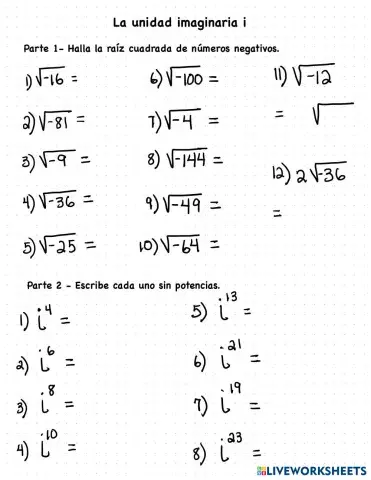 La unidad imaginaria i
Parte 1- Halla la raíz cuadrada de números negativos.
1) √-16 =
2) √-81 =
3) √-9 =
4) √-36 =
5) √-25 =
6) √-100 =
7) √-4 =
8) √-144 =
9) √-49 =
10) √-64 =
11) √-12
= √
12) 2√-36
=
Parte 2 - Escribe cada uno sin potencias.
1) i⁴ =
2) i⁶ =
3) i⁸ =
4) i¹⁰ =
5) i¹³ =
6) i²¹ =
7) i¹⁹ =
8) i²³ =
LIVEWORKSHEETS